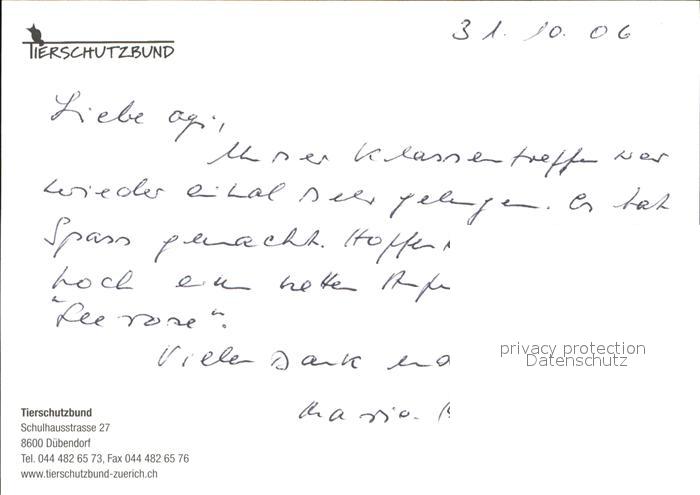 TIERSCHUTZBUND
31.10.06
Liebe Agi,
Unser Klassentreffen war
wieder einmal sehr gelungen. Es hat
Spass gemacht.
noch ein netten
"Seerose".
Vielen Dank und
privacy protection
Datenschutz
Tierschutzbund
Schulhausstrasse 27
8600 Dübendorf
Tel. 044 482 65 73, Fax 044 482 65 76
www.tierschutzbund-zuerich.ch